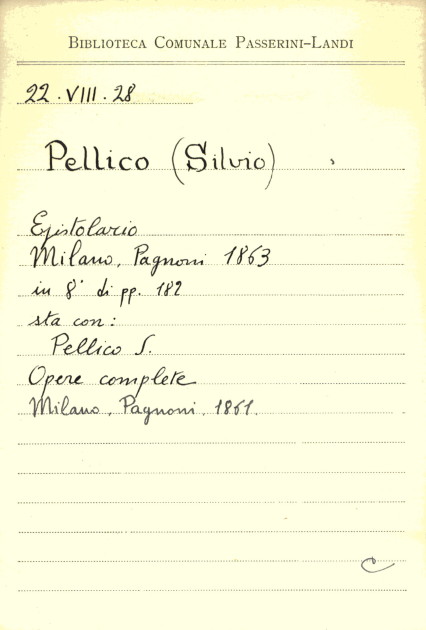 BIBLIOTECA COMUNALE PASSERINI-LANDI
22.VIII.28
Pellico (Silvio)
Epistolario
Milano, Pagnoni 1863
in 8° di pp. 182
sta con:
Pellico S.
Opere complete
Milano, Pagnoni, 1861.
C